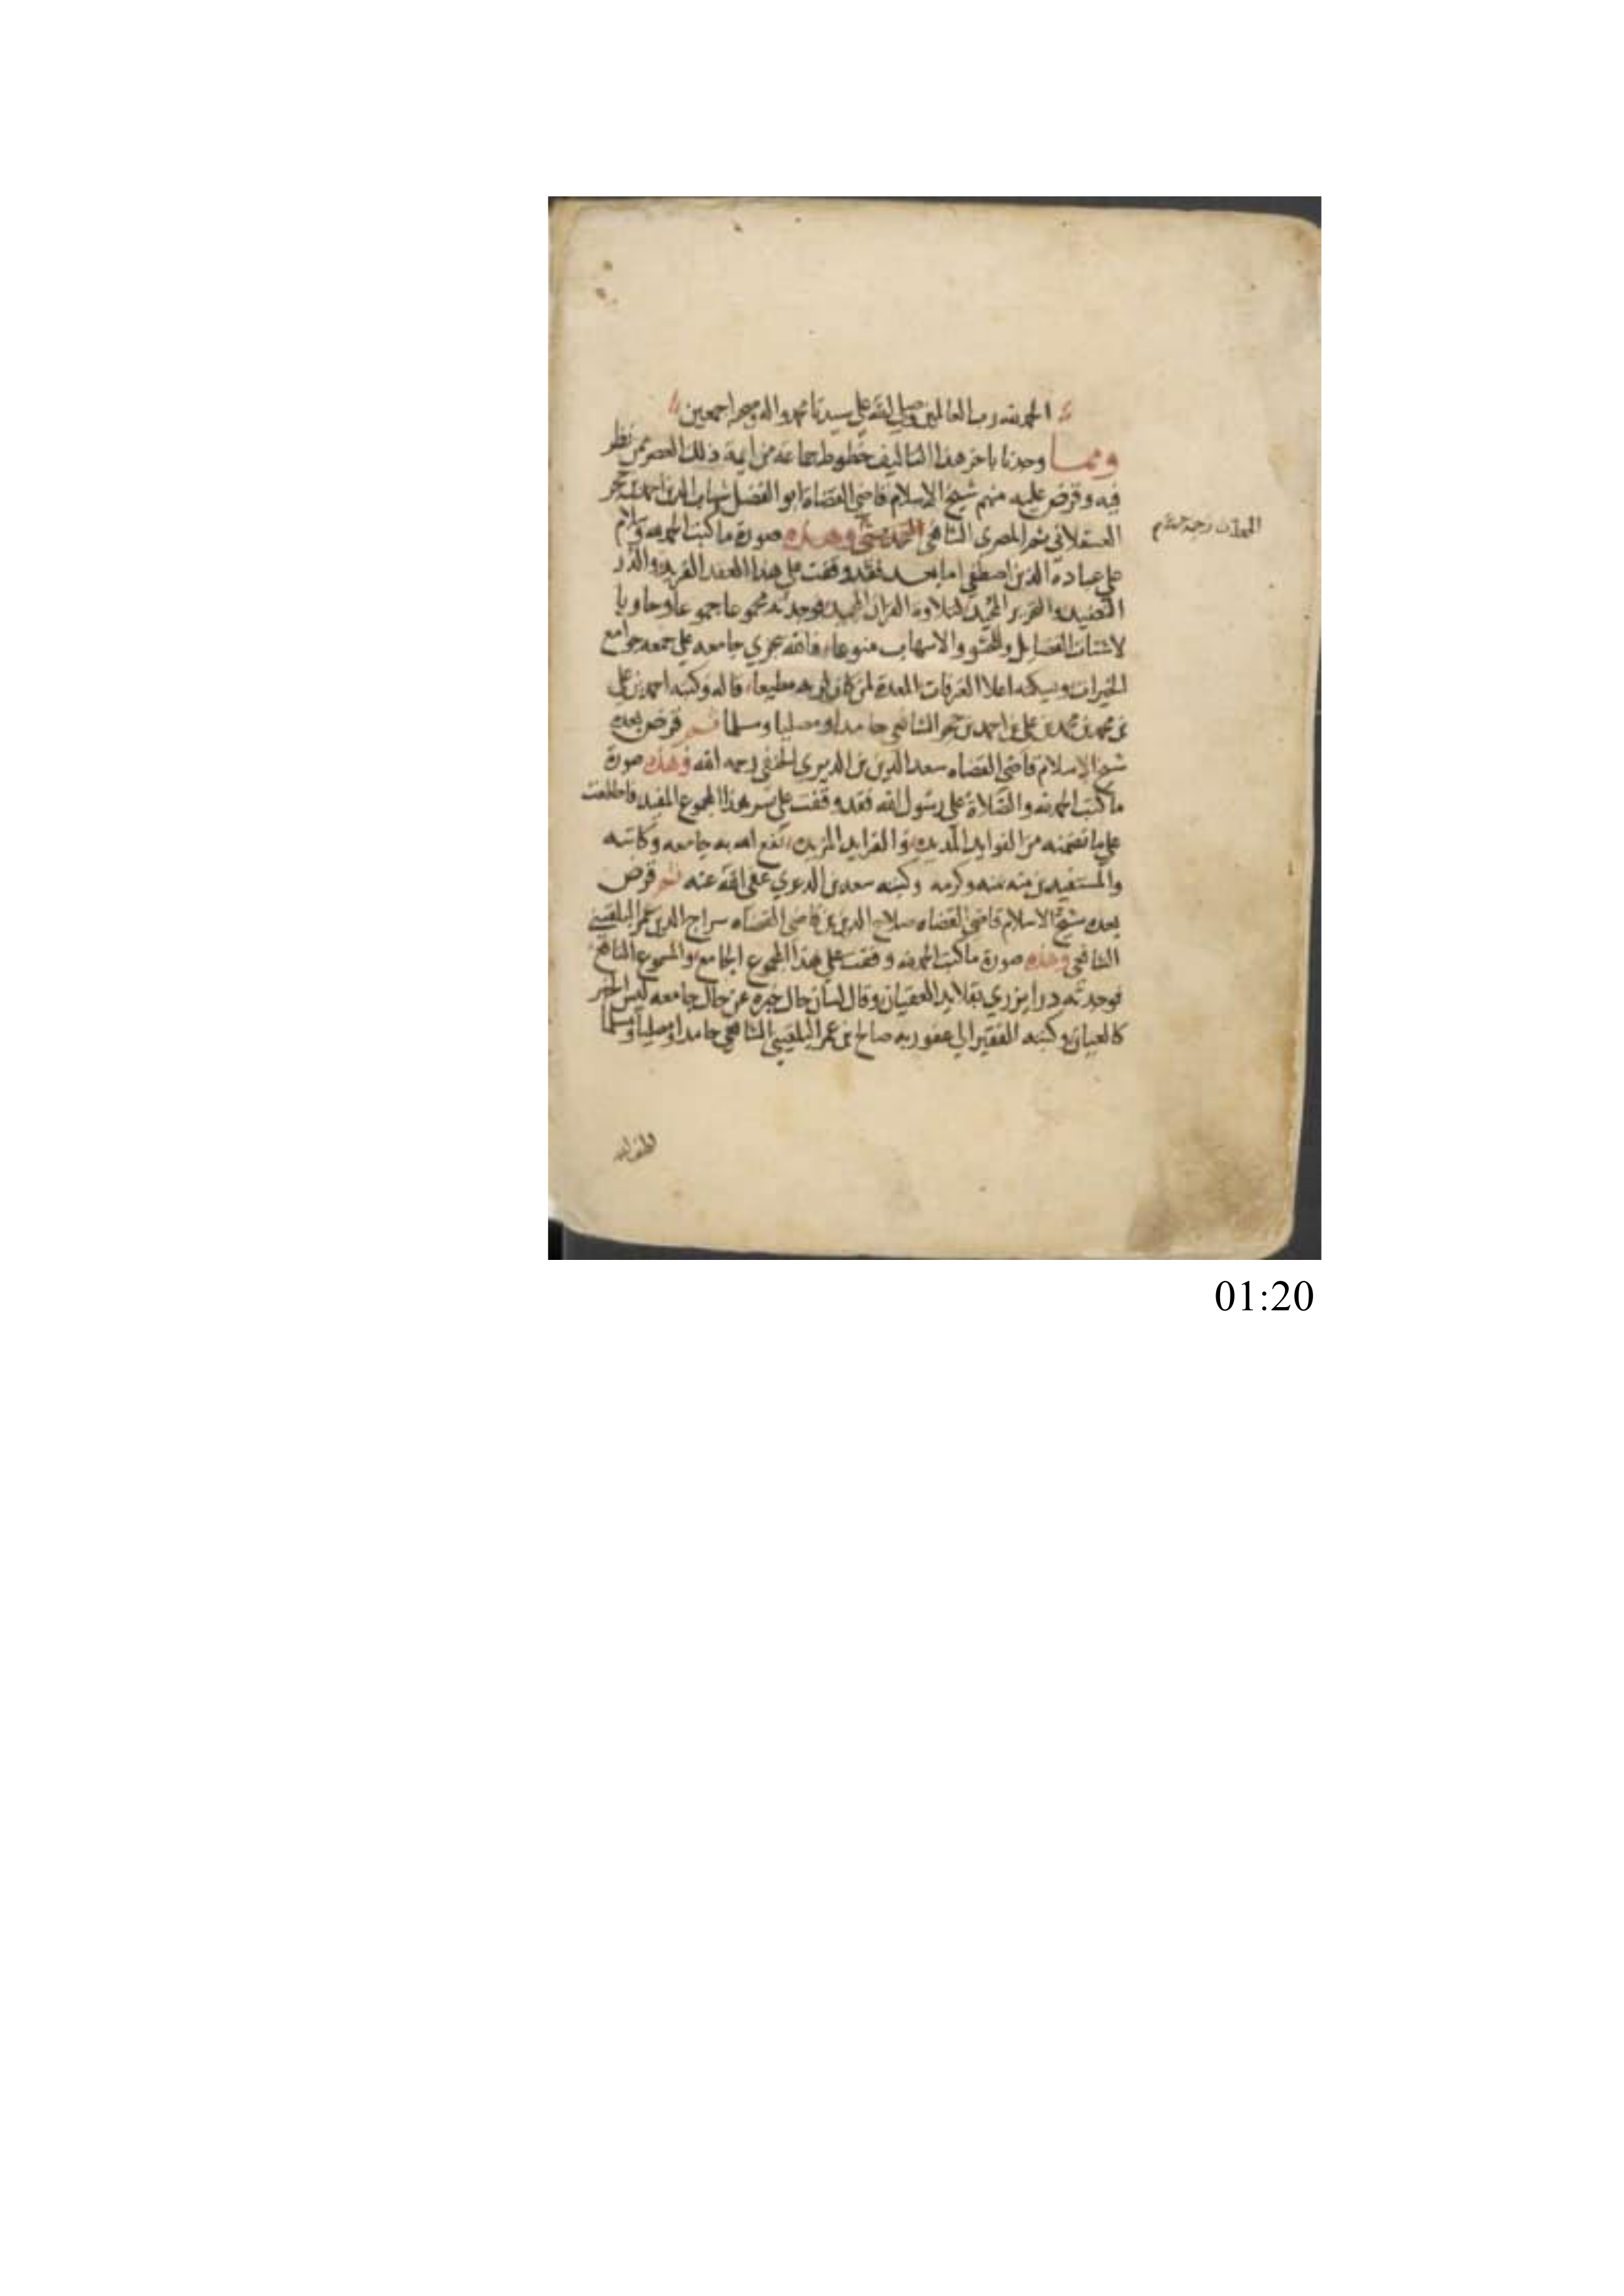 الحمد لله رب العالمين وصلي الله علي سيدنا محمد واله وصحبه اجمعين
ومما وجدنا باخر هذا التاليف خطوط جماعة من ايمة ذلك العصر ممن نظر
فيه وقرض عليه منهم شيخ الاسلام قاضي القضاة ابو الفضل شهاب الدين احمد بن حجر
العسقلاني ثم المصري الشافعي وهذه صورة ما كتب الحمد لله وسلام
علي عباده الذين اصطفي اما بعد فقد وقفت علي هذا العقد الفريد والدر
النضيد والتحرير المجيد لتلاوة القران المجيد فوجدته مجموعا جموعا وحاويا
لاشتات الفضايل وللحشو والاسهاب منوعا فالله يجزي جامعه علي جمعه جوامع
الخيرات ويسكنه اعلا الغرفات المعدة لمن كان لربه مطيعا قاله وكتبه احمد بن علي
بن محمد بن محمد بن علي بن احمد بن حجر الشافعي حامدا ومصليا ومسلما ثم قرض بعده
شيخ الاسلام قاضي القضاه سعد الدين بن الديري الحنفي رحمه الله وهذه صورة
ما كتب الحمد لله والصلاة علي رسول الله فقد وقفت علي هذا المجموع المفيد فاطلعت
علي ما تضمنه من الفوايد العديده والفرايد المزيده نفع الله به جامعه وكاتبه
والمستفيدين منه بمنه وكرمه وكتبه سعد بن الديري عفي الله عنه ثم قرض
بعده شيخ الاسلام قاضي القضاه صلاح الدين بن قاضي القضاه سراج الدين عمر البلقيني
الشافعي وهذه صورة ما كتب الحمد لله وقفت علي هذا المجموع الجامع والمسموع النافع
فوجدته درا يزري بقلايد العقيان وقال لسان حال خبره عن حال جامعه ليس الخبر
كالعيان وكتبه الفقير الي عفو ربه صالح بن عمر البلقيني الشافعي حامدا ومصليا ومسلما
01:20